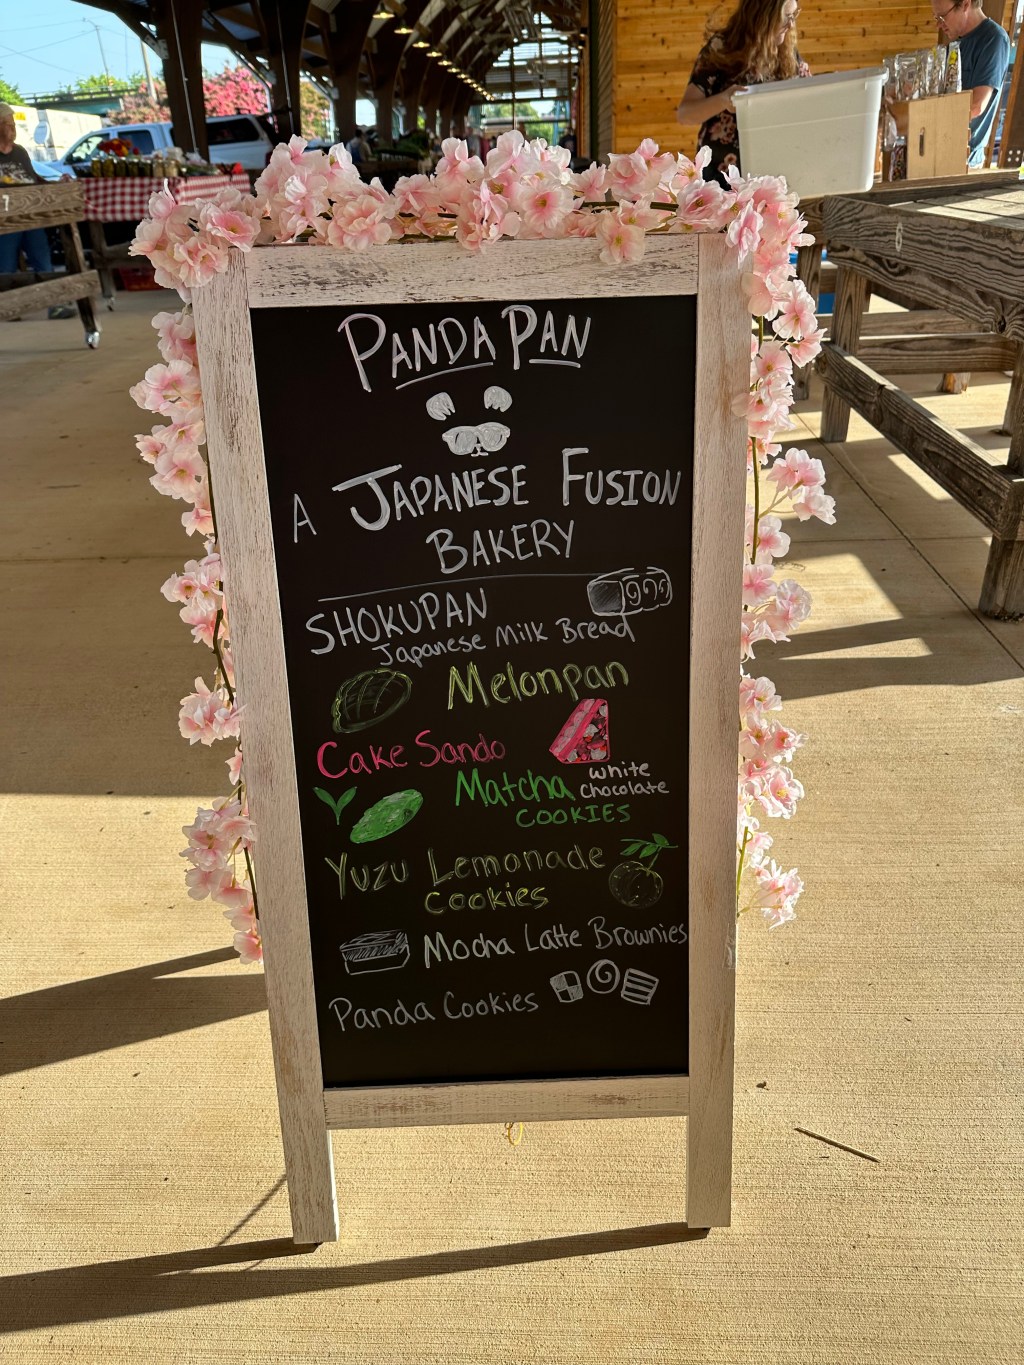 PANDA PAN
A JAPANESE FUSION
BAKERY
SHOKUPAN
Japanese Milk Bread
Melonpan
Cake Sando
Matcha White
Chocolate
COOKIES
Yuzu Lemonade
Cookies
Mocha Latte Brownies
Panda Cookies
7
6